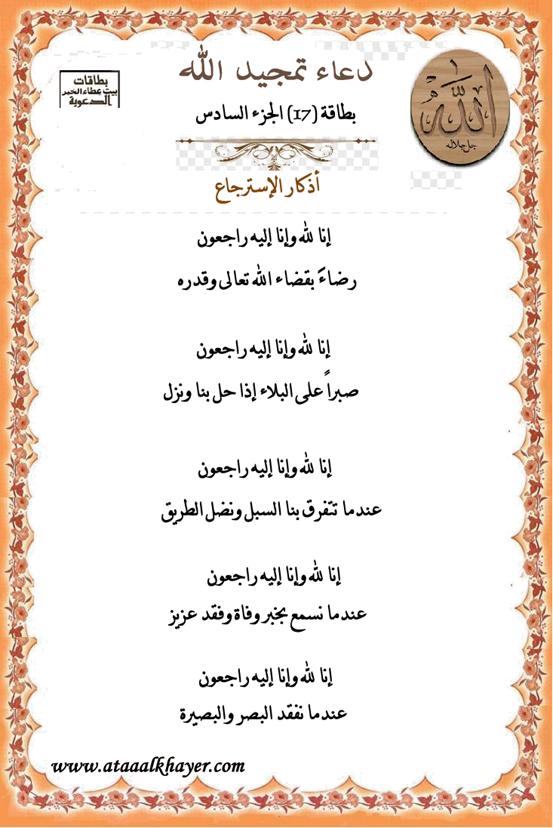 دعاء تمجيد الله
بطاقات
بيت عطاء الخير
الدعوية
الله
جل جلاله
بطاقة (17) الجزء السادس
أذكار الإسترجاع
إنا لله وإنا إليه راجعون
رضاءً بقضاء الله تعالى وقدره
إنا لله وإنا إليه راجعون
صبراً على البلاء إذا حل بنا ونزل
إنا لله وإنا إليه راجعون
عندما تتفرق بنا السبل ونضل الطريق
إنا لله وإنا إليه راجعون
عندما نسمع بخبر وفاة وفقد عزيز
إنا لله وإنا إليه راجعون
عندما نفقد البصر والبصيرة
www.ataaalkhayer.com